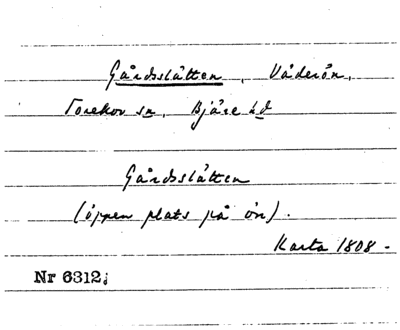 Gårdsslätten, Väderön,
Torekov sn, Bjäre hd
Gårdsslätten
(öppen plats på ön).
Karta 1808 -
Nr 6312;